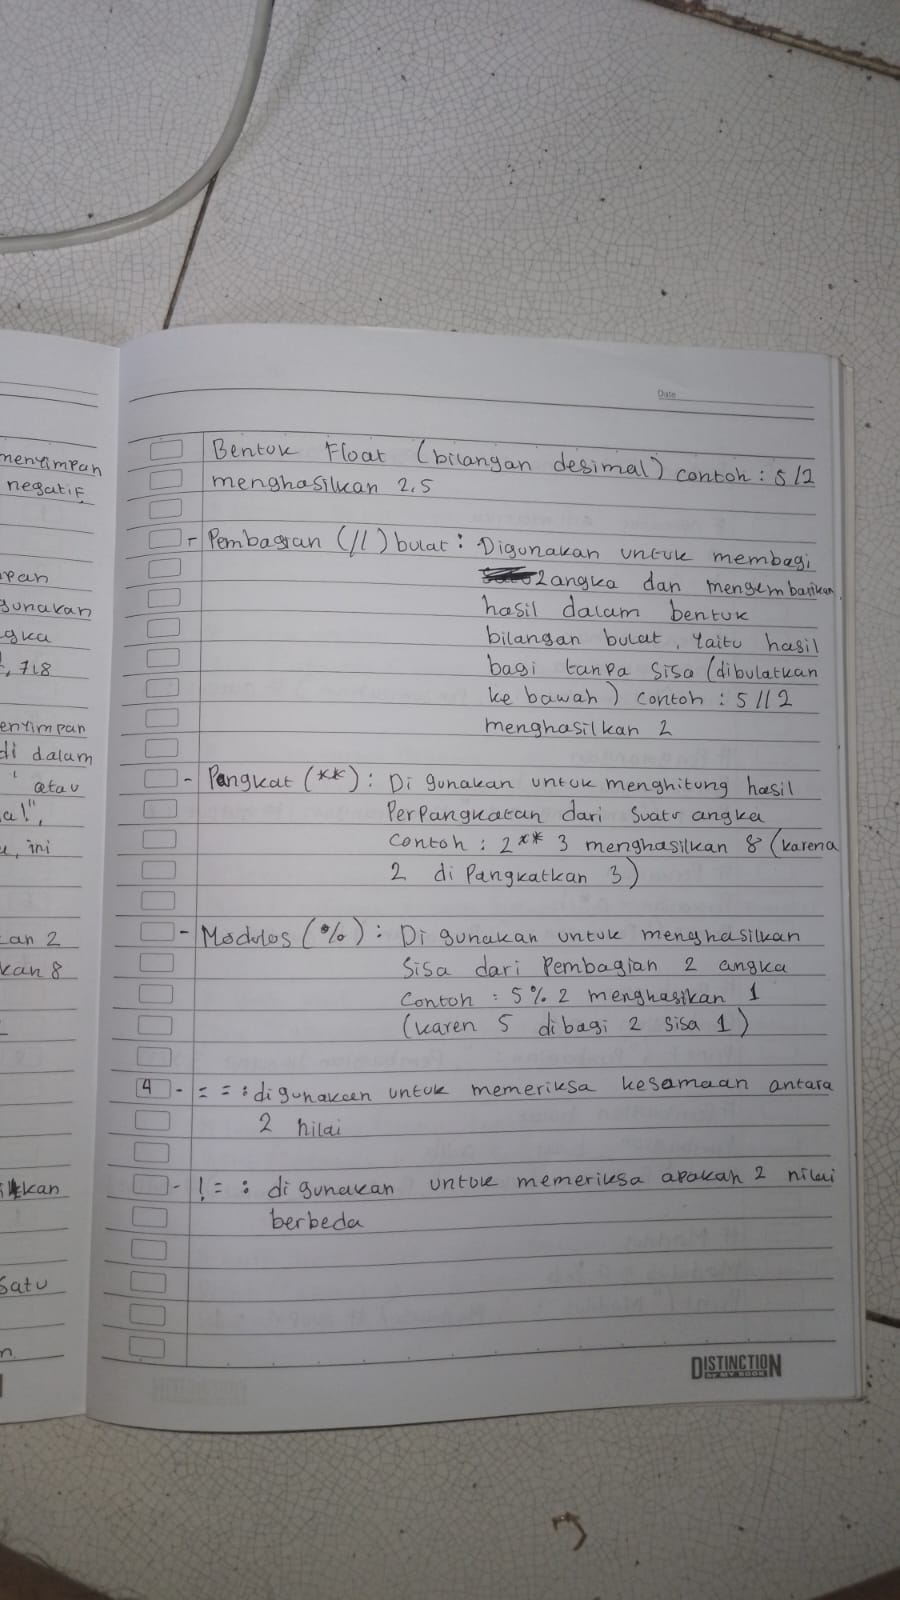 menyimpan
negatif,
npan
gunakan
gka
2, 718
enyimpan
di dalam
' atau
a!",
u, ini
kan 2
kan 8
kan
satu
n
Date
Bentuk Float (bilangan desimal) contoh : 5 / 2
menghasilkan 2,5
- Pembagian (//) bulat : Digunakan untuk membagi
2 angka dan mengembarikan
hasil dalam bentuk
bilangan bulat, yaitu hasil
bagi tanpa sisa (dibulatkan
ke bawah) contoh : 5 // 2
menghasilkan 2
- Pangkat (**) : Di gunakan untuk menghitung hasil
Perpangkatan dari suatu angka
Contoh : 2 ** 3 menghasilkan 8 (karena
2 di Pangkatkan 3)
- Modulos (%) : Di gunakan untuk menghasilkan
sisa dari Pembagian 2 angka
Contoh : 5 % 2 menghasikan 1
(karen 5 dibagi 2 sisa 1)
4 - = = : di gunakan untuk memeriksa kesamaan antara
2 nilai
- ! = : di gunakan untuk memeriksa apakah 2 nilai
berbeda
DISTINCTION
by MY BOOK